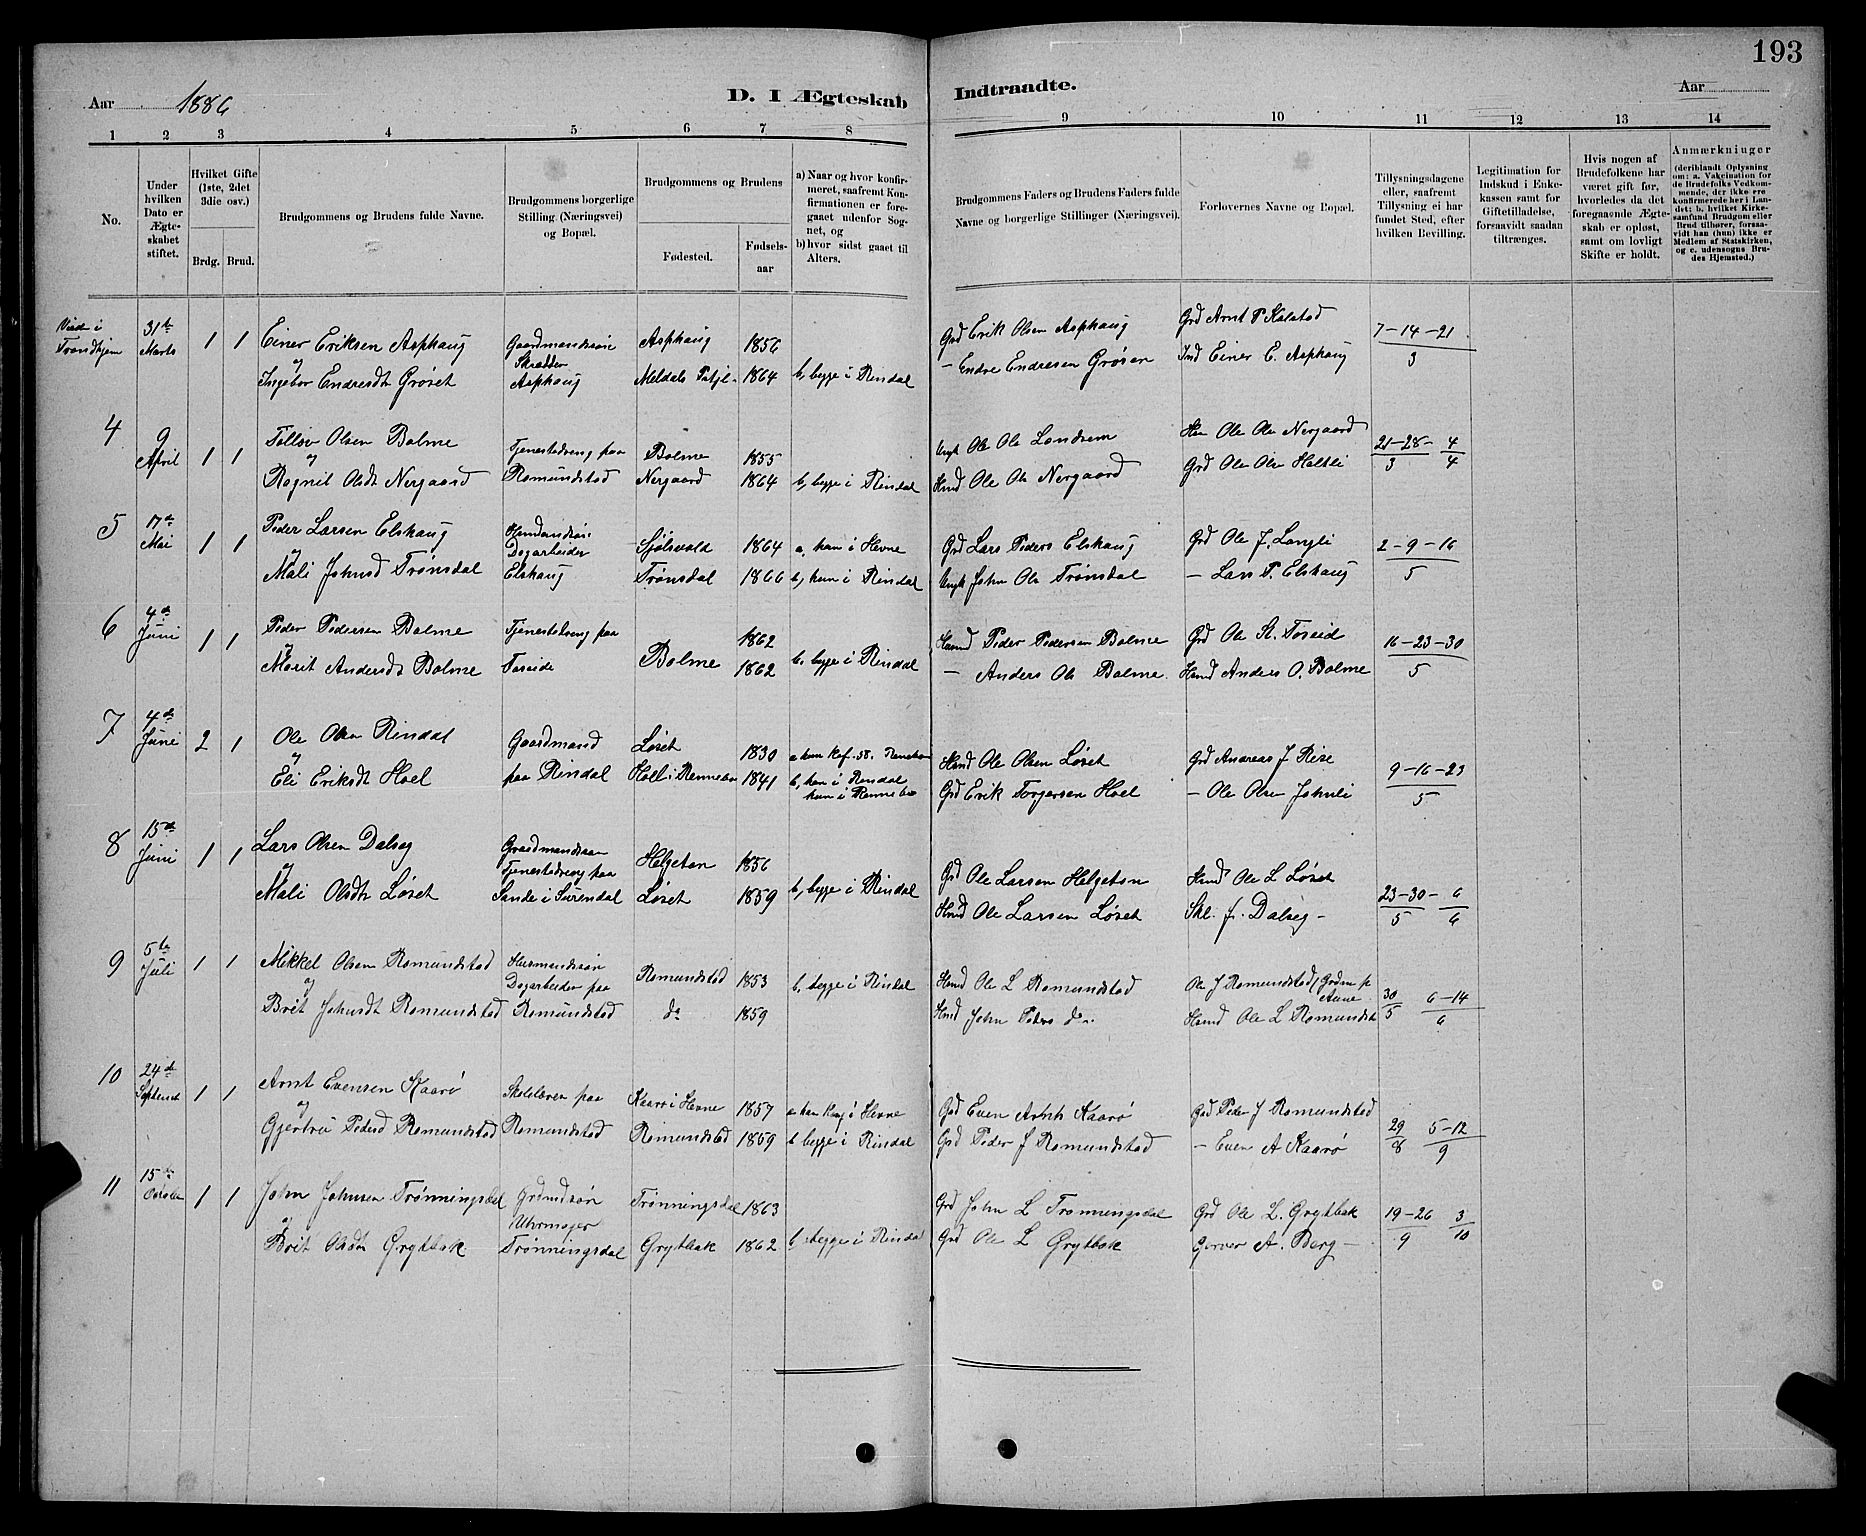 193
Aar 1886 D. I Ægteskab Indtraadte. Aar
1 2 3 4 5 6 7 8 9 10 11 12 13 14
No.
Under hvilken Dato er Ægteskabet stiftet.
Hvilket Gifte (1ste, 2det 3die osv.)
Brdg. Brud.
Brudgommens og Brudens fulde Navne.
Brudgommens borgerlige Stilling (Næringsvei) og Bopæl.
Brudgommens og Brudens
Fødested.
Fødsels-aar
a) Naar og hvor konfirmeret, saafremt Konfirmationen er foregaaet udenfor Sognet, og
b) hvor sidst gaaet til Alters.
Brudgommens Faders og Brudens Faders fulde Navne og borgerlige Stillinger (Næringsvei).
Forlovernes Navne og Bopæl.
Tillysningsdagene eller, saafremt Tillysning ei har fundet Sted, efter hvilken Bevilling.
Legitimation for Indskud i Enkekassen samt for Giftetilladelse, forsaavidt saadan tiltrænges.
Hvis nogen af Brudefolkene har været gift før, hvorledes da det foregaaende Ægteskab er opløst, samt om lovligt Skifte er holdt.
Anmærkninger (deriblandt Oplysning om: a. Vakcination for de Brudefolks Vedkommende, der ikke ere konfirmerede her i Landet; b. hvilket Kirkesamfund Brudgum eller Brud tilhører, forsaavidt han (hun) ikke er Medlem af Statskirken, og c. udensogns Brudes Hjemsted.)
Viede i Trondhjem 31te Marts 1 1 Einer Eriksen Asphaug Gaardmandssøn Asphaug 1856 Grd Erik Olsen Asphaug Grd Arnt P Kalstad 7-14-21
og Skrædder
Ingebor Endresdt Grøset Asphaug Meldals Prstgl. 1864 b, begge i Rindal – Endre Endresen Grøsen Ind Einer E. Asphaug 3
4 9 April 1 1 Tollov Olsen Bolme Tjenestedreng paa Bolme 1855 Ungk Ole Ols Landsem Hm Ole Ols Nergaard 21-28- 4
og
Ragnil Olsdt Nergaard Romundstad Nergaard 1864 b, begge i Rindal Hmd Ole Ols Nergaard Grd Ole Ols Holtli 3 4
5 17de Mai 1 1 Peder Larsen Elshaug Husmandssøn Sjølsvold 1864 a, han i Hevne Grd Lars Peders Elshaug Grd Ole J. Langli 2-9-16
og Dagarbeider
Mali Johnsd Trønsdal Elshaug Trønsdal 1866 b, hun i Rindal Ungk John Ols Trønsdal – Lars P. Elshaug 5
6 4de Juni 1 1 Peder Pedersen Bolme Tjenestedreng paa Bolme 1862 Husmd Peder Pedersen Bolme Grd Ole St. Torseid 16-23-30
og
Marit Andersdt Bolme Torseide 1862 b, begge i Rindal – Anders Ols Bolme. Hmd Anders O. Bolme 5
7 4de Juni 2 1 Ole Olsen Rindal Gaardmand Løset 1830 Hmd Ole Olsen Løset Grd Andreas J Rise 9-16-23
og
Eli Eriksdt Hoel paa Rindal Holl i Rennebu 1841 b, han i Rindal Grd Erik Torgersen Hoel – Ole Olsen Johnli 5
hun i Rennebu
8 15de Juni 1 1 Lars Olsen Dalseg Gaardmandssøn Helgetøn 1856 Grd Ole Larsen Helgetøn Hmd Ole L Løset 23-30- 6
og Tjenestedreng paa
Mali Olsdtr Løset Sande i Surendal Løset 1859 b, begge i Rindal Hmd Ole Larsen Løset Skl. J. Dalseg – 5 6
9 5te Juli 1 1 Mikkel Olsen Romundstad Husmandssøn Romundstad 1853 b, begge i Rindal Hmd Ole L Romundstad Ole J Romundstad/Grdm p Aune 30 6-14
og Dagarbeider paa
Brit Johnsdt Romundstad Romundstad do 1859 Hmd John Peders do. Husmd Ole L Romundst 5 6
10 24de September 1 1 Arnt Evensen Kaarø Skolelærer paa Kaarø i Hevne 1857 a han konf i Hevne Grd Even Arnts Kaarø Grd Peder J Romundstad 29 5-12
og
Gjertru Pedersd Romundstad Romundstad Romundstad 1859 b begge i Rindal Grd Peder J Romundstad – Even A Kaarø 8 9
11 15de October 1 1 John Johnsen Trønningsdal Grdmdssøn Trønningsdal 1863 Grd John L Trønningsdal Grd Ole L. Grytbak 19-26 3
og Uhrmager
Brit Olsdtr Grytbak Trønningsdal Grytbak 1862 b begge i Rindal Grd Ole L Grytbak Garver A. Berg – 9 10